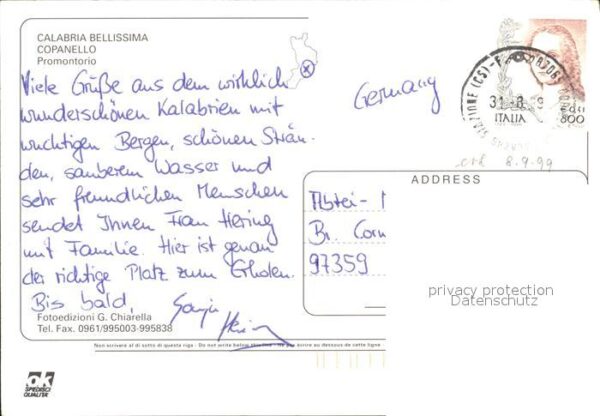 CALABRIA BELLISSIMA
COPANELLO
Promontorio
Viele Grüße aus dem wirklich
wunderschönen Kalabrien mit
wuchtigen Bergen, schönen Strän-
den, sauberem Wasser und
sehr freundlichen Menschen
sendet Ihnen Frau Hering
mit Familie. Hier ist genau
der richtige Platz zum Erholen.
Bis bald,
Fotoedizioni G. Chiarella
Tel. Fax. 0961/995003-995838
Germany
31-8
ITALIA
800
8.9.99
ADDRESS
Abtei-
Br. Corn
97359
privacy protection
Datenschutz
Non scrivere al di sotto di questa riga - Do not write below this line - Ne pas écrire au dessous de cette ligne
ok
SPEDISCI
QUALITÀ